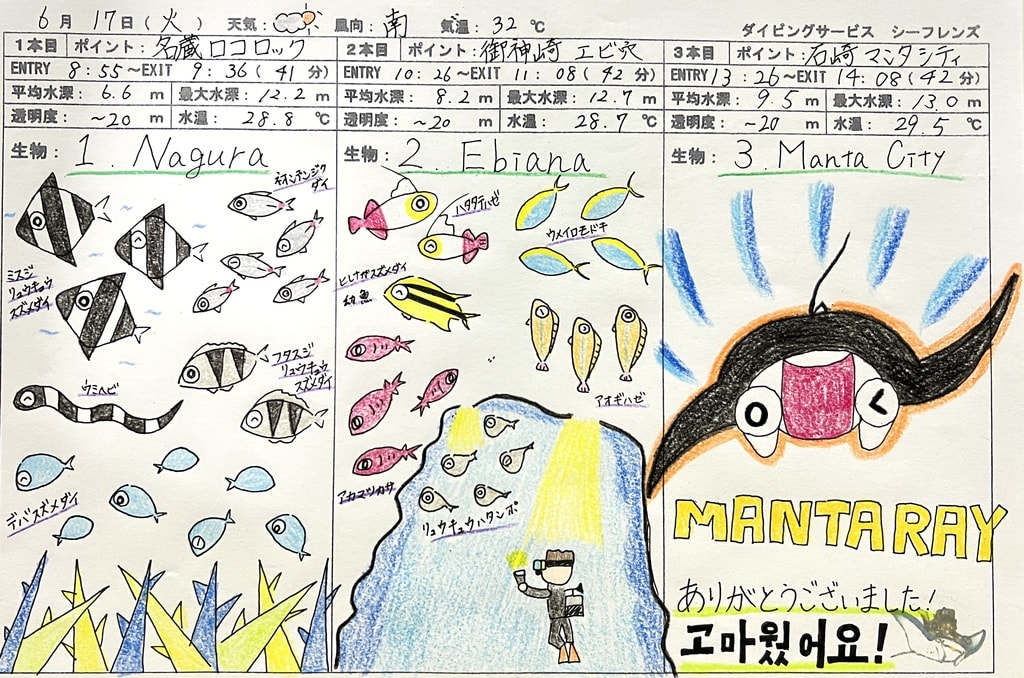 6月17日(火) 天気: 風向:南 気温:32℃
ダイビングサービス シーフレンズ
1本目 ポイント:名蔵ロコロック
ENTRY 8:55~EXIT 9:36(41分)
平均水深:6.6m 最大水深:12.2m
透明度:~20m 水温:28.8℃
生物:1. Nagura
ネオンテンジク
ダイ
ミスジ
リュウキュウ
スズメダイ
フタスジ
リュウキュウ
スズメダイ
ウミヘビ
デバスズメダイ
2本目 ポイント:御神崎 エビ穴
ENTRY 10:26~EXIT 11:08(42分)
平均水深:8.2m 最大水深:12.7m
透明度:~20m 水温:28.7℃
生物:2. Ebiana
ハタタテハゼ
ウメイロモドキ
ヒレナガスズメダイ
幼魚
アオギハゼ
アカマツカサ
リュウキュウハタンポ
3本目 ポイント:石崎マンタシティ
ENTRY 13:26~EXIT 14:08(42分)
平均水深:9.5m 最大水深:13.0m
透明度:~20m 水温:29.5℃
生物:3. Manta City
MANTARAY
ありがとうございました!
고마웠어요!